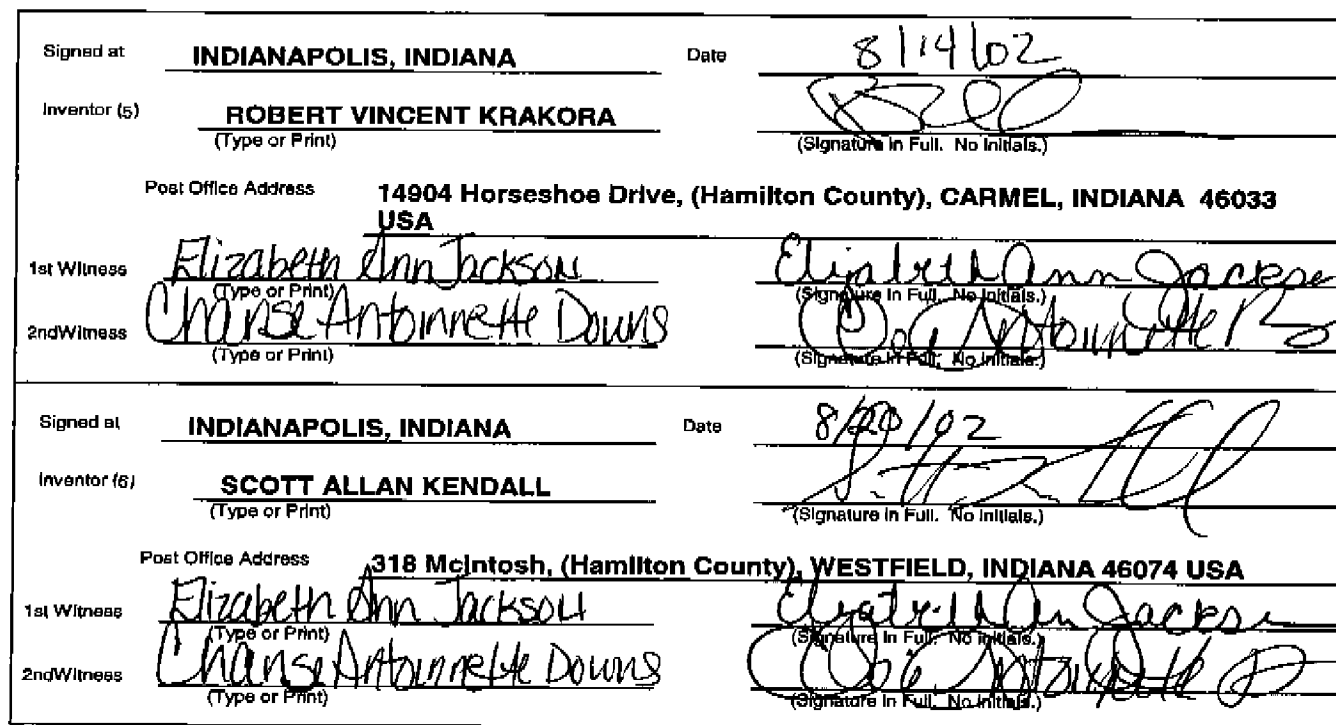 Signed at INDIANAPOLIS, INDIANA Date 8/14/02
Inventor (5) ROBERT VINCENT KRAKORA
(Type or Print) (Signature in Full. No Initials.)
Post Office Address 14904 Horseshoe Drive, (Hamilton County), CARMEL, INDIANA 46033
USA
1st Witness Elizabeth Ann Jackson Elizabeth Ann Jackson
(Type or Print) (Signature in Full. No Initials.)
2ndWitness Chanse Antoinnette Downs Antoinnette
(Type or Print) (Signature in Full. No Initials.)
Signed at INDIANAPOLIS, INDIANA Date 8/20/02
Inventor (6) SCOTT ALLAN KENDALL
(Type or Print) (Signature in Full. No Initials.)
Post Office Address 318 McIntosh, (Hamilton County), WESTFIELD, INDIANA 46074 USA
1st Witness Elizabeth Ann Jackson Elizabeth Ann Jackson
(Type or Print) (Signature in Full. No Initials.)
2ndWitness Chanse Antoinnette Downs
(Type or Print) (Signature in Full. No Initials.)